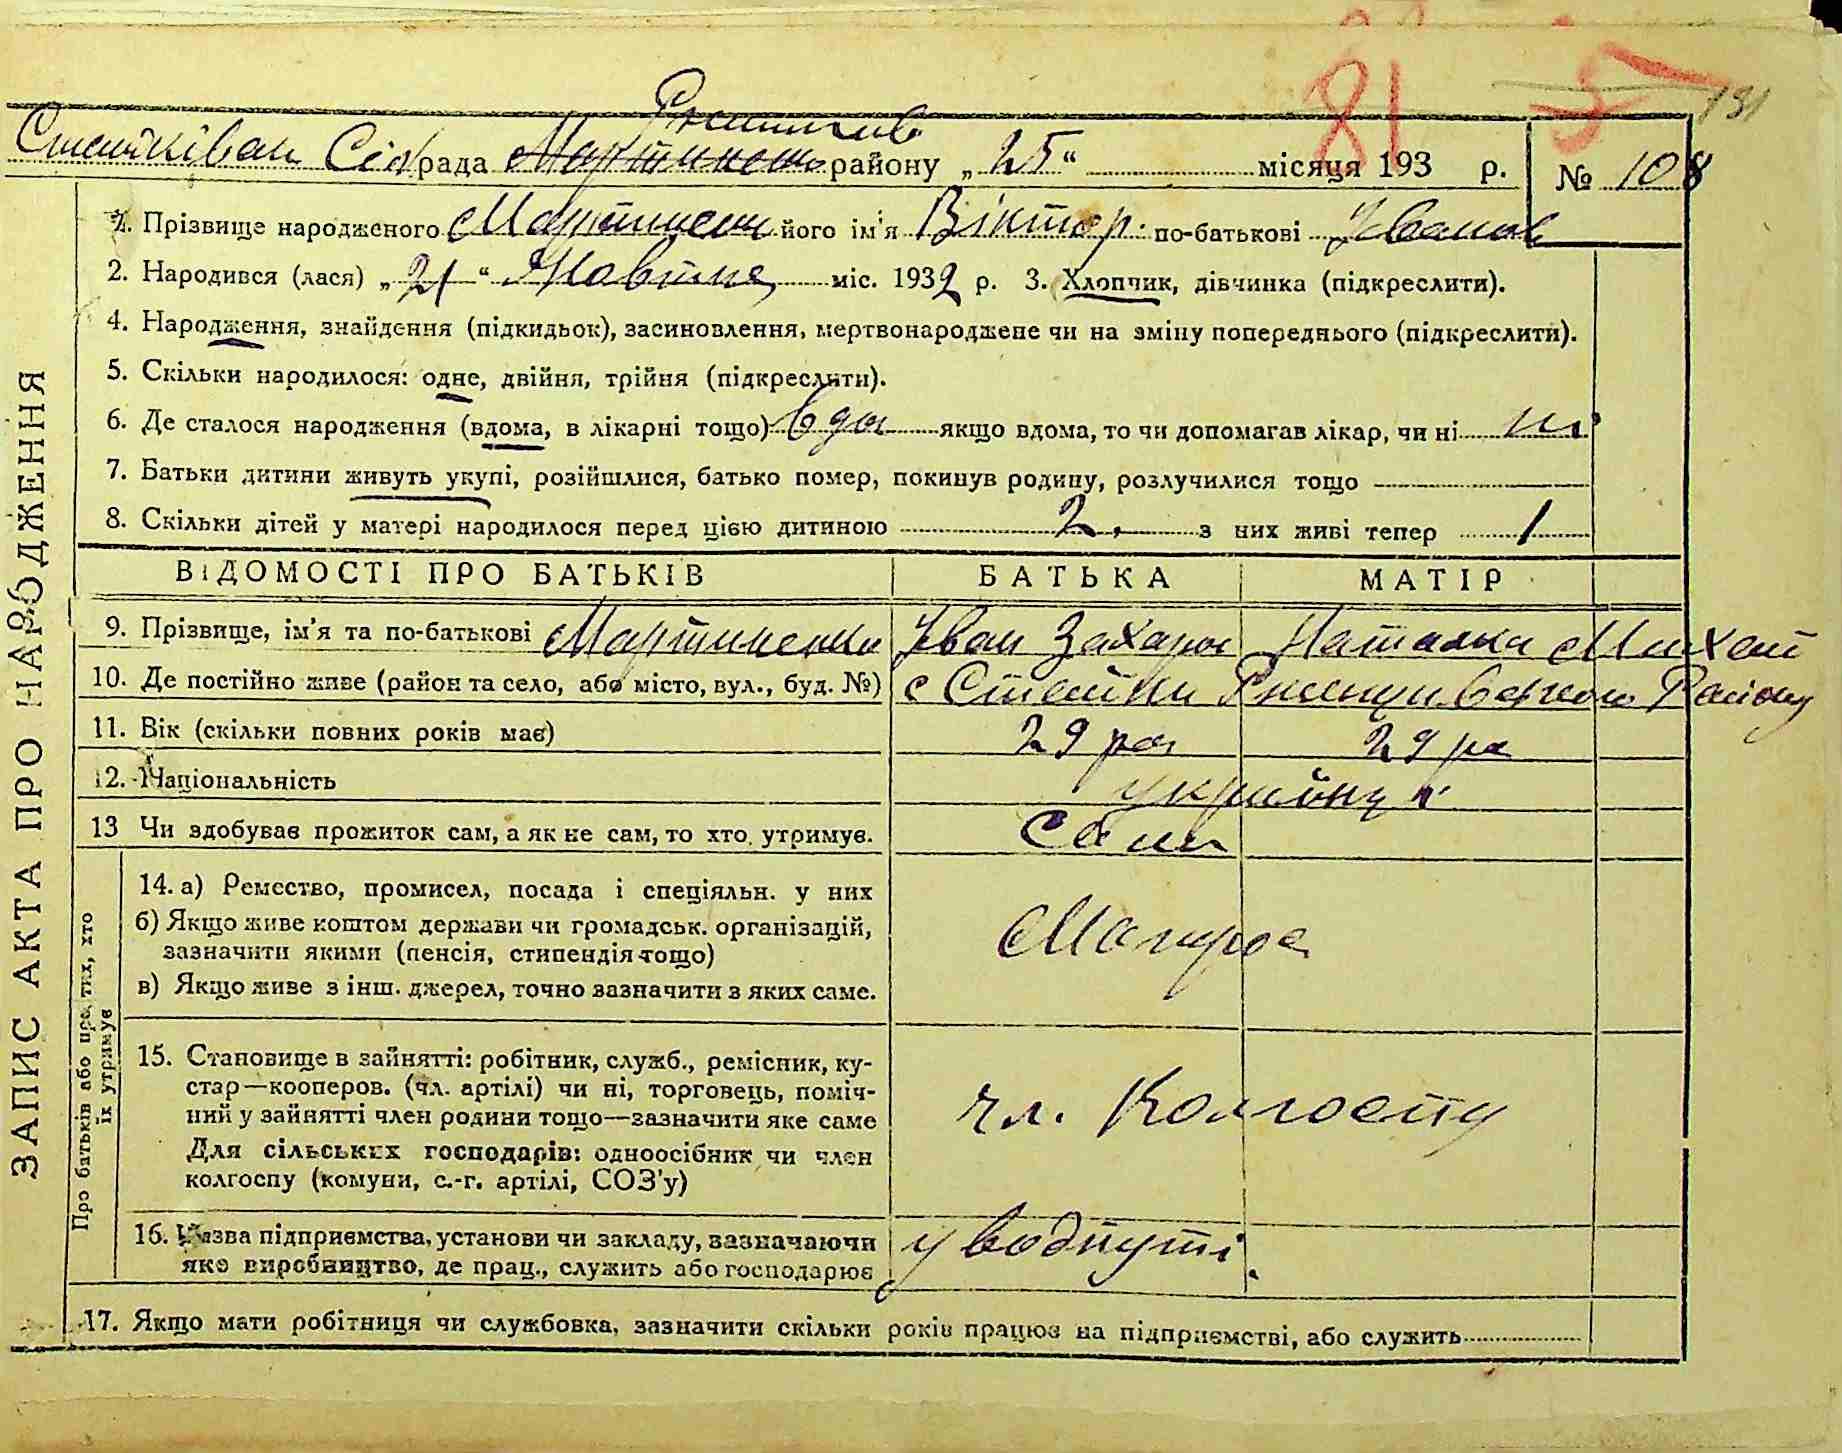 81 5 181
Ржищів
Стайківан Сільрада Мартиненко району „25“ місяця 193 р. № 108
1. Прізвище народженого Мартиненко його ім'я Віктор по-батькові Іванов
2. Народився (лася) „21“ Жовтня міс. 1932 р. 3. Хлопчик, дівчинка (підкреслити).
4. Народження, знайдення (підкидьок), засиновлення, мертвонароджене чи на зміну попереднього (підкреслити).
5. Скільки народилося: одне, двійня, трійня (підкреслити).
6. Де сталося народження (вдома, в лікарні тощо) вдом якщо вдома, то чи допомагав лікар, чи ні ні
7. Батьки дитини живуть укупі, розійшлися, батько помер, покинув родину, розлучилися тощо
8. Скільки дітей у матері народилося перед цією дитиною 2. з них живі тепер 1
ВІДОМОСТІ ПРО БАТЬКІВ БАТЬКА МАТІР
9. Прізвище, ім'я та по-батькові Мартиненко Іван Захаров Наталка Михайл
10. Де постійно живе (район та село, або місто, вул., буд. №) с Стайки Ржищивського Району
11. Вік (скільки повних років має) 29 рок 29 ро
12. Національність українці
13 Чи здобував прожиток сам, а як не сам, то хто утримує. Сами
14. а) Ремество, промисел, посада і спеціяльн. у них
б) Якщо живе коштом держави чи громадськ. організацій,
зазначити якими (пенсія, стипендія тощо) Матрос
в) Якщо живе з інш. джерел, точно зазначити з яких саме.
15. Становище в зайнятті: робітник, служб., ремісник, ку-
стар—кооперов. (чл. артілі) чи ні, торговець, поміч-
ний у зайнятті член родини тощо—зазначити яке саме чл. Колгоспу
Для сільських господарів: одноосібник чи член
колгоспу (комуни, с.-г. артілі, СОЗ'у)
16. Назва підприємства, установи чи закладу, зазначаючи у водпуті.
яке виробництво, де прац., служить або господарює
17. Якщо мати робітниця чи службовка, зазначити скільки років працює на підприємстві, або служить
ЗАПИС АКТА ПРО НАРОДЖЕННЯ
Про батьків або про тих, хто
їх утримує